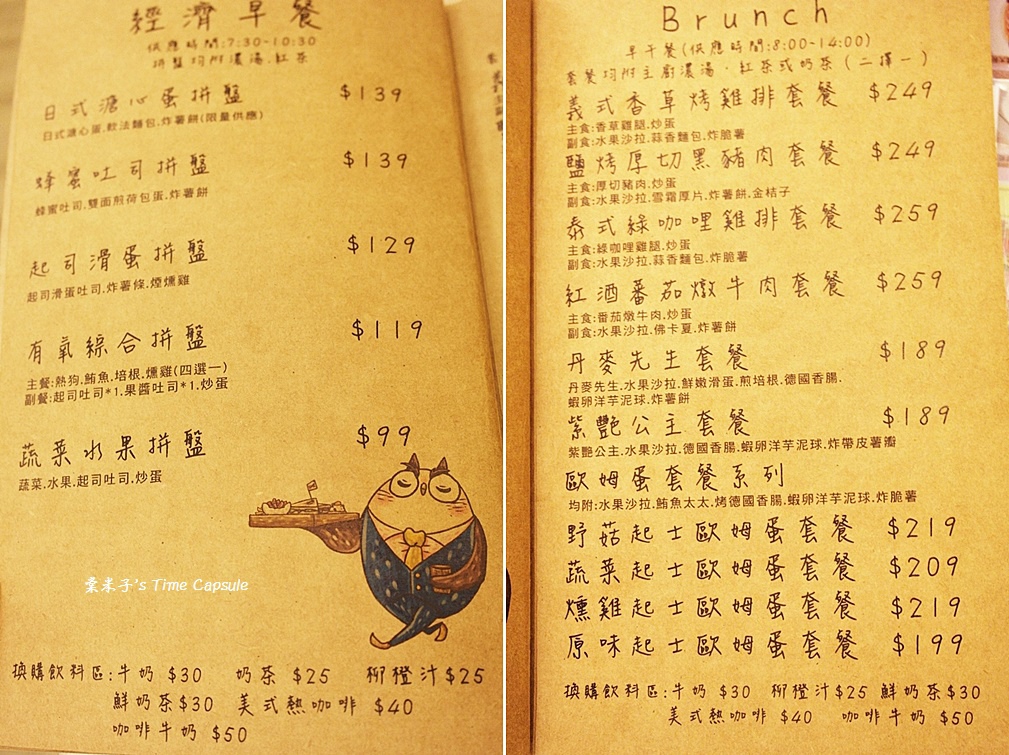 經濟早餐
供應時間:7:30-10:30
拼盤均附濃湯.紅茶
日式溏心蛋拼盤 $139
日式溏心蛋.軟法麵包.炸薯餅(限量供應)
蜂蜜吐司拼盤 $139
蜂蜜吐司.雙面煎荷包蛋.炸薯餅
起司滑蛋拼盤 $129
起司滑蛋吐司.炸薯條.煙燻雞
有氧綜合拼盤 $119
主餐:熱狗.鮪魚.培根.燻雞(四選一)
副餐:起司吐司*1.果醬吐司*1.炒蛋
蔬菜水果拼盤 $99
蔬菜.水果.起司吐司.炒蛋
粟米子's Time Capsule
換購飲料區:牛奶 $30 奶茶 $25 柳橙汁$25
鮮奶茶$30 美式熱咖啡 $40
咖啡牛奶 $50
Brunch
早午餐(供應時間:8:00-14:00)
套餐均附主廚濃湯.紅茶或奶茶(二擇一)
義式香草烤雞排套餐 $249
主食:香草雞腿.炒蛋
副食:水果沙拉.蒜香麵包.炸脆薯
鹽烤厚切黑豬肉套餐 $249
主食:厚切豬肉.炒蛋
副食:水果沙拉.雪霜厚片.炸薯餅.金桔子
泰式綠咖哩雞排套餐 $259
主食:綠咖哩雞腿.炒蛋
副食:水果沙拉.蒜香麵包.炸脆薯
紅酒蕃茄燉牛肉套餐 $259
主食:番茄燉牛肉.炒蛋
副食:水果沙拉.佛卡夏.炸薯餅
丹麥先生套餐 $189
丹麥先生.水果沙拉.鮮嫩滑蛋.煎培根.德國香腸.
蝦卵洋芋泥球.炸薯餅
紫艷公主套餐 $189
紫艷公主.水果沙拉.德國香腸.蝦卵洋芋泥球.炸帶皮薯瓣
歐姆蛋套餐系列
均附:水果沙拉.鮪魚太太.烤德國香腸.蝦卵洋芋泥球.炸脆薯
野菇起士歐姆蛋套餐 $219
蔬菜起士歐姆蛋套餐 $209
燻雞起士歐姆蛋套餐 $219
原味起士歐姆蛋套餐 $199
換購飲料區:牛奶 $30 柳橙汁$25 鮮奶茶$30
美式熱咖啡 $40 咖啡牛奶 $50